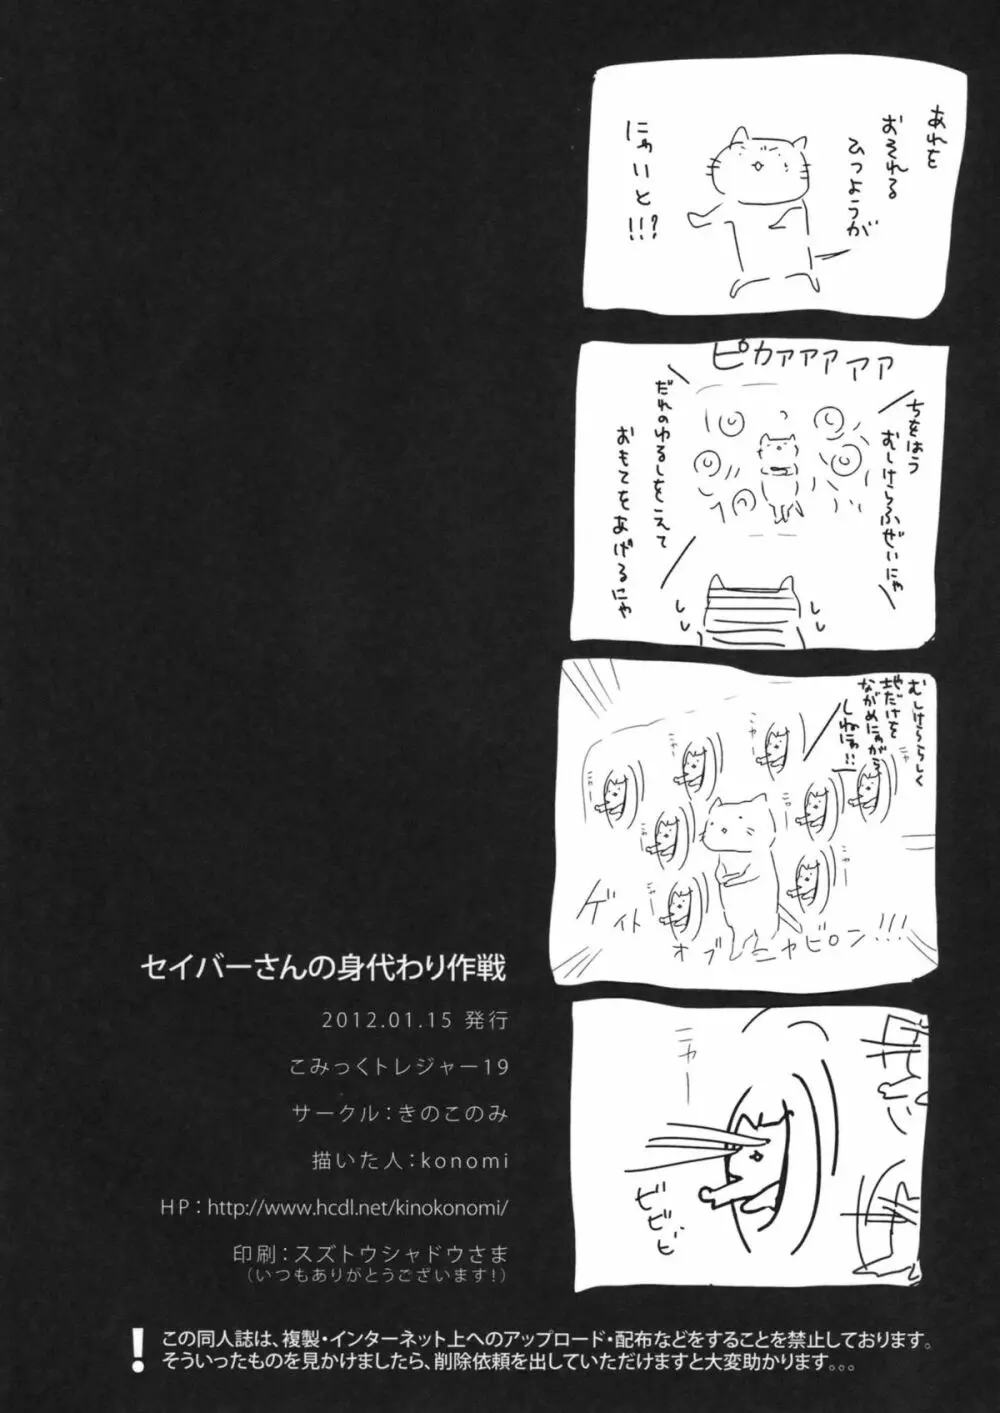 あれを
おそれる
ひつようが
にゃいと!!!?
ピカァァァァァ
ちをはう
むしけらふぜいにゃ
だれのゆるしをこえて
おもてをあげるにゃ
むしけららしく
地だけを
ながめにゃがら
しねにゃ!!
ニャー
ニャー
ニャー
ニャー
ニャー
ニャー
ニャー
ニャー
ゲイト
オブレニャビロン!!!
ニャー
ビビビ
セイバーさんの身代わり作戦
2012.01.15 発行
こみっくトレジャー19
サークル：きのこのみ
描いた人：konomi
HP：http://www.hcdl.net/kinokonomi/
印刷：スズトウシャドウさま
（いつもありがとうございます!）
! この同人誌は、複製・インターネット上へのアップロード・配布などをすることを禁止しております。
そういったものを見かけましたら、削除依頼を出していただけますと大変助かります。。。